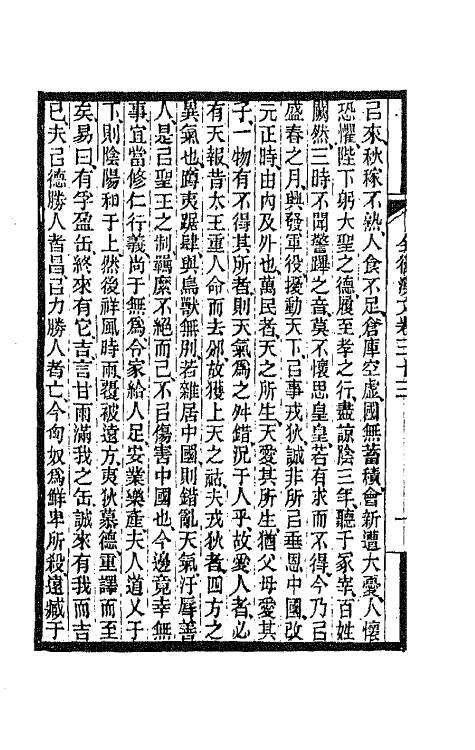 全後漢文卷三十三
㠯來秋稼不熟人食不足倉庫空虛國無蓄積會新遭大憂人懷
恐懼陛下躬大聖之德履至孝之行盡諒陰三年聽于冢宰百姓
闕然三時不聞警蹕之音莫不懷思皇皇若有求而不得今乃㠯
盛春之月興發軍役擾動天下㠯事戎狄誠非所㠯垂恩中國改
元正時由內及外也萬民者天之所生天愛其所生猶父母愛其
子一物有不得其所者則天氣爲之舛錯況于人乎故愛人者必
有天報昔太王重人命而去邠故獲上天之祜夫戎狄者四方之
異氣也蹲夷踞肆與鳥獸無別若雜居中國則錯亂天氣汙辱善
人是㠯聖王之制羈縻不絕而已不㠯傷害中國也今邊竟幸無
事宜當修仁行義尚于無爲令家給人足安業樂產夫人道乂于
下則陰陽和于上然後祥風時雨覆被遠方夷狄慕德重譯而至
矣易曰有孚盈缶終來有它吉言甘雨滿我之缶誠來有我而吉
已夫㠯德勝人者昌㠯力勝人者亡今匈奴爲鮮卑所殺遠臧于